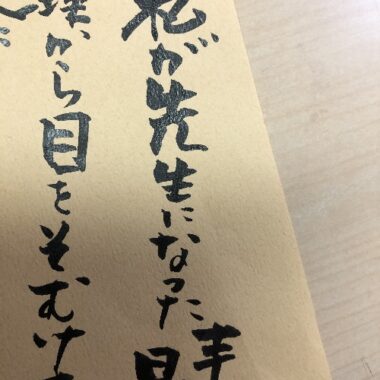 私が先生になった
から目をそむけ